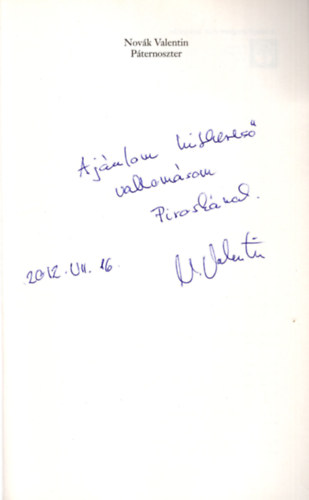 Novák Valentin
Páternoszter
Ajánlom kiskereső
vallomásom
Piroskának.
2012. VII. 16.
N. Valentin